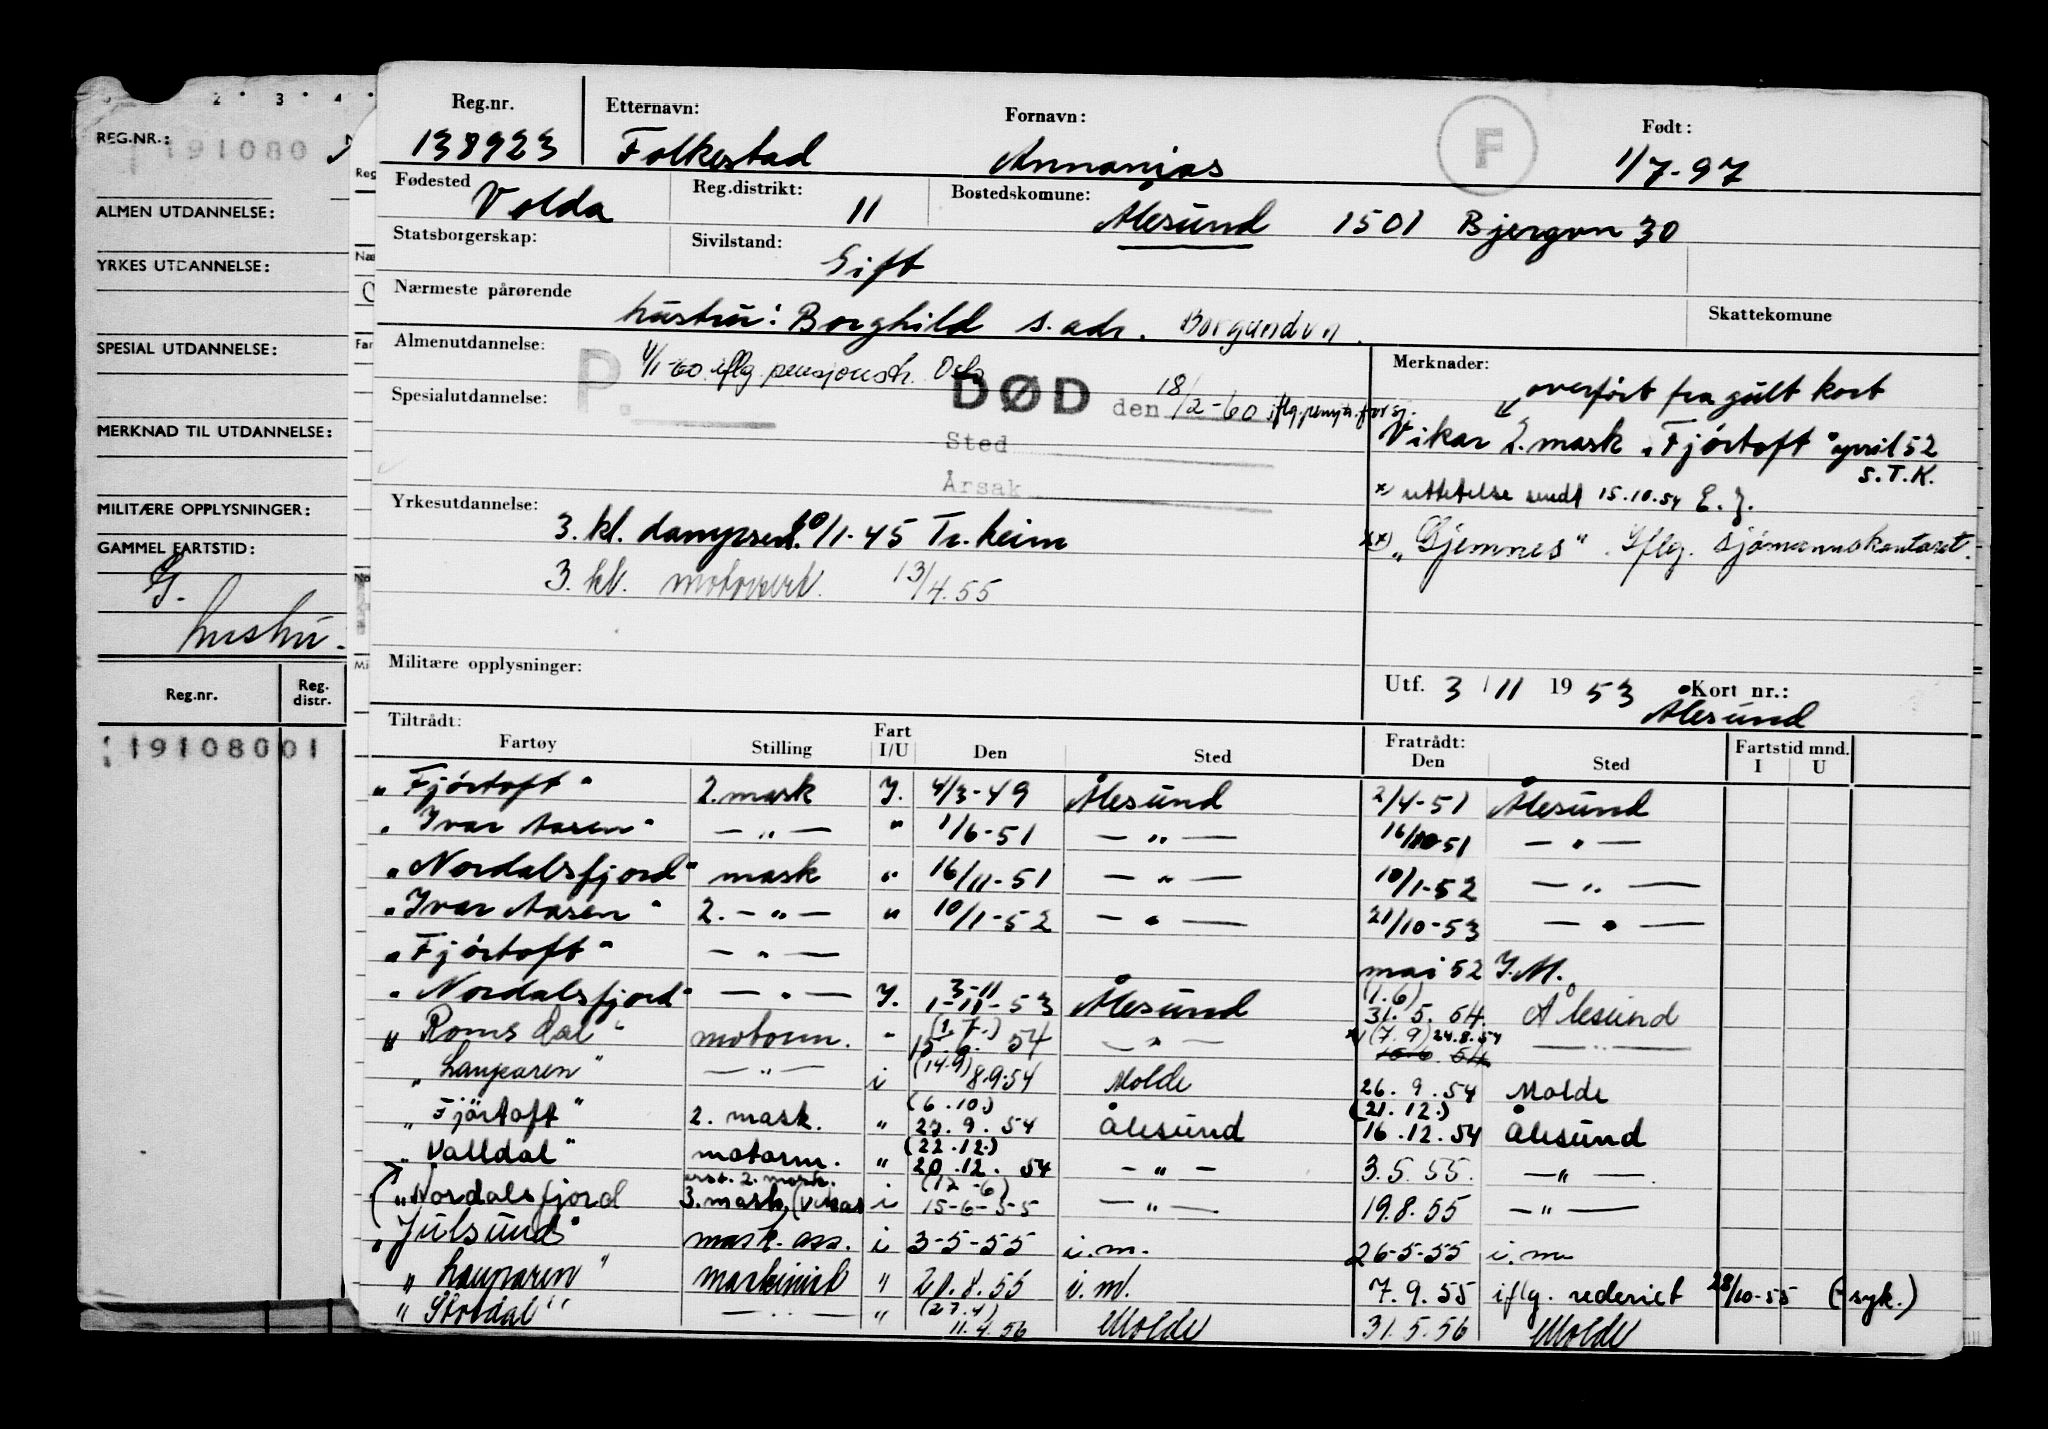 2 · 3 · 4 ·
REG.NR.: 191080
ALMEN UTDANNELSE:
YRKES UTDANNELSE:
SPESIAL UTDANNELSE:
MERKNAD TIL UTDANNELSE:
MILITÆRE OPPLYSNINGER:
GAMMEL FARTSTID:
hustru.
Reg.nr. Reg. distr.
19108001
Reg.nr. Etternavn: Fornavn: F Født:
138923 Folkestad Annanias 1/7-97
Fødested Volda Reg.distrikt: 11 Bostedskomune: Ålesund 1501 Bjergvn 30
Statsborgerskap: Sivilstand: Gift
Nærmeste pårørende hustru: Borghild s. adr. Borgundvn. Skattekomune
Almenutdannelse: P. 1/1-60 iflg. pensjonstr. Oslo Merknader:
overført fra gult kort
Spesialutdannelse: DØD den 18/2-60 iflg. pensj.tr.
Vikar 2. mask „Fjörtoft" april 52
S.T.K.
Sted
Årsak
x) uttelelse sendt 15.10.54 E.J.
Yrkesutdannelse: 3. kl. dampsert. 20/1-45 Tr.heim
xx) „Gjemnes". Iflg. sjömannskontoret.
3. kl. motorsert. 13/4.55
Militære opplysninger:
Utf. 3/11 1953 Kort nr.:
Ålesund
Tiltrådt: Fart Fratrådt: Fartstid mnd.
Fartøy Stilling I/U Den Sted Den Sted I U
„Fjörtoft" 2. mask I. 4/3-49 Ålesund 2/4-51 Ålesund
„Ivar Aasen" — „ — " 1/6-51 — „ — 16/10-51 — „ —
„Nordalsfjord" mask " 16/11-51 — „ — 10/1-52 — „ —
„Ivar Aasen" 2. — „ — " 10/1-52 — „ — 21/10-53 — „ —
„Fjörtoft" — „ — mai 52 I.M.
„Nordalsfjord" — „ — I. 3-11 1-11-53 Ålesund (1.6) 31.5.54. Ålesund
„Romsdal" motorm. " (1.7.) 15.6. 54 — „ — x) (7.9) 24.8.54 — „ —
„Lauparen" — „ — i (14.9) 8.9.54 Molde 26.9.54 Molde
„Fjörtoft" 2. mask. " (6.10.) 27.9.54 Ålesund (21.12.) 16.12.54 Ålesund
„Valldal" motorm. " (22.12.) 20.12. 54 — „ — 3.5.55. — „ —
(„Nordalsfjord erst. 2. mask. 3. mask, (vikar i (12-6) 15-6-55 — „ — 19.8.55 — „ —
„Julsund" mask. ass. i 3-5-55 i.m. 26-5-55 i.m.
„Lauparen" maskinist " 20.8.55 i.m. 7.9.55 iflg. rederiet 28/10-55 (syk.)
„Stordal" — „ — " (27.4) 11.4.56 Molde 31.5.56 Molde